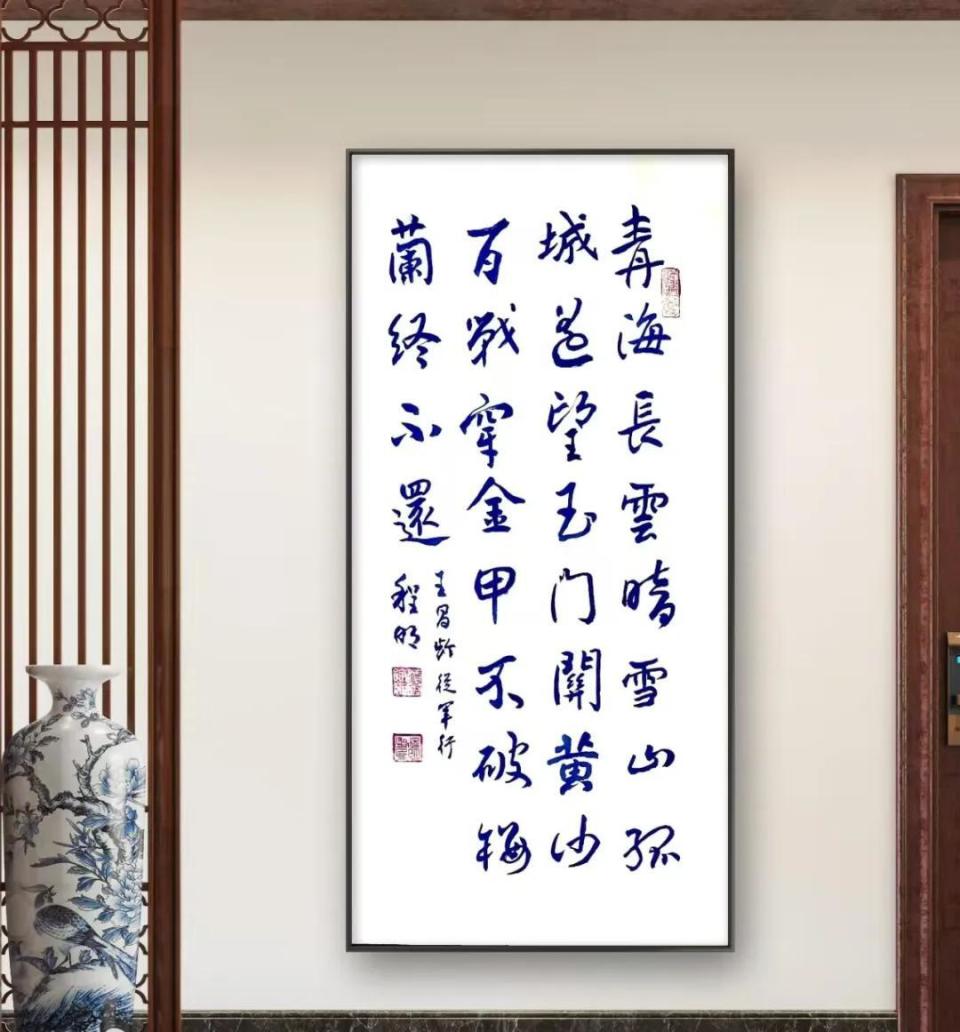 青海長雲暗雪山孤
城遥望玉门關黄沙
百戰穿金甲不破樓
蘭终不還
王昌齡從軍行
程明